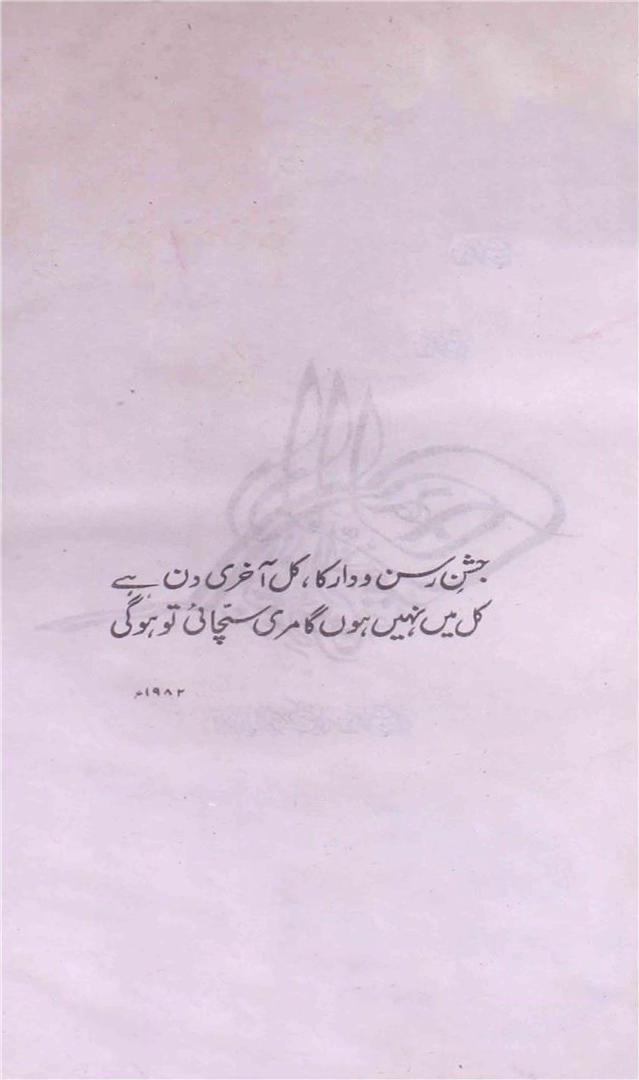 جشنِ رسن و دار کا، کل آخری دن ہے
کل میں نہیں ہوں گا مری سچّائی تو ہوگی
۱۹۸۲ء